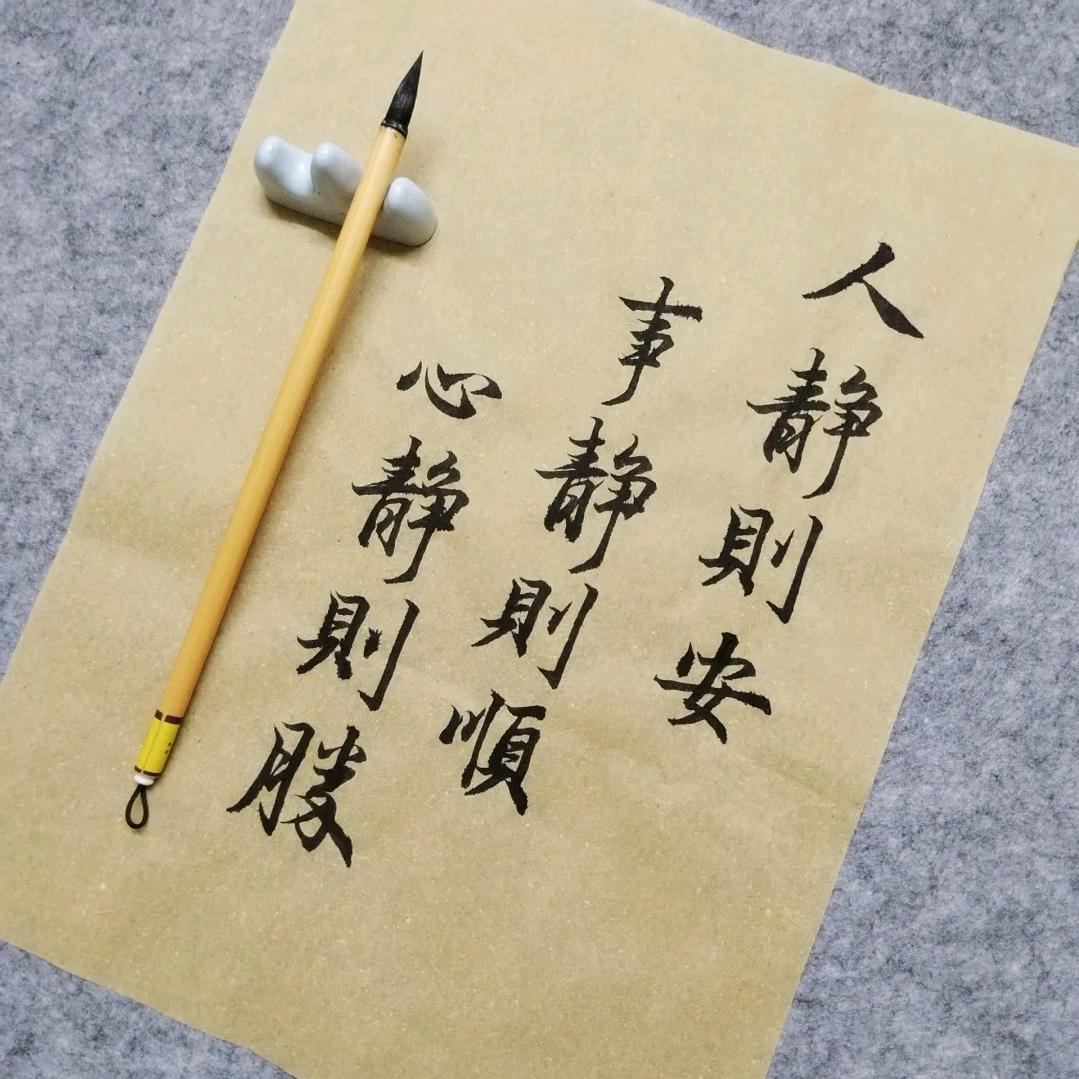 人静則安
事静則順
心静則勝